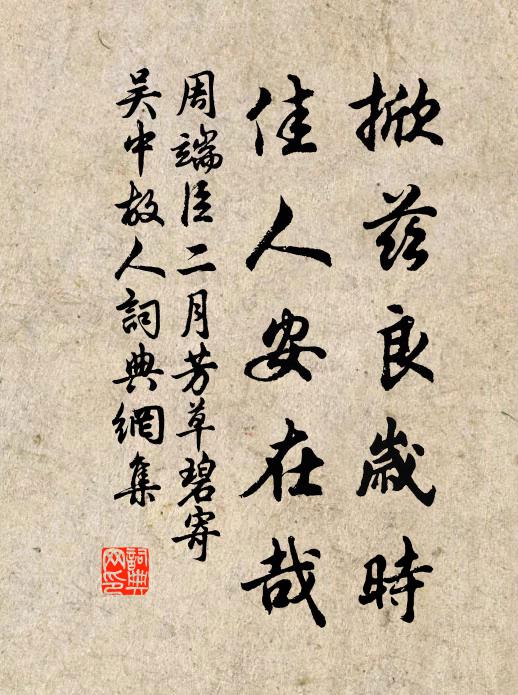 撫茲良歲時
佳人安在哉
周端臣二月芳草碧寄
吴中故人詞典網集
詞典
网印